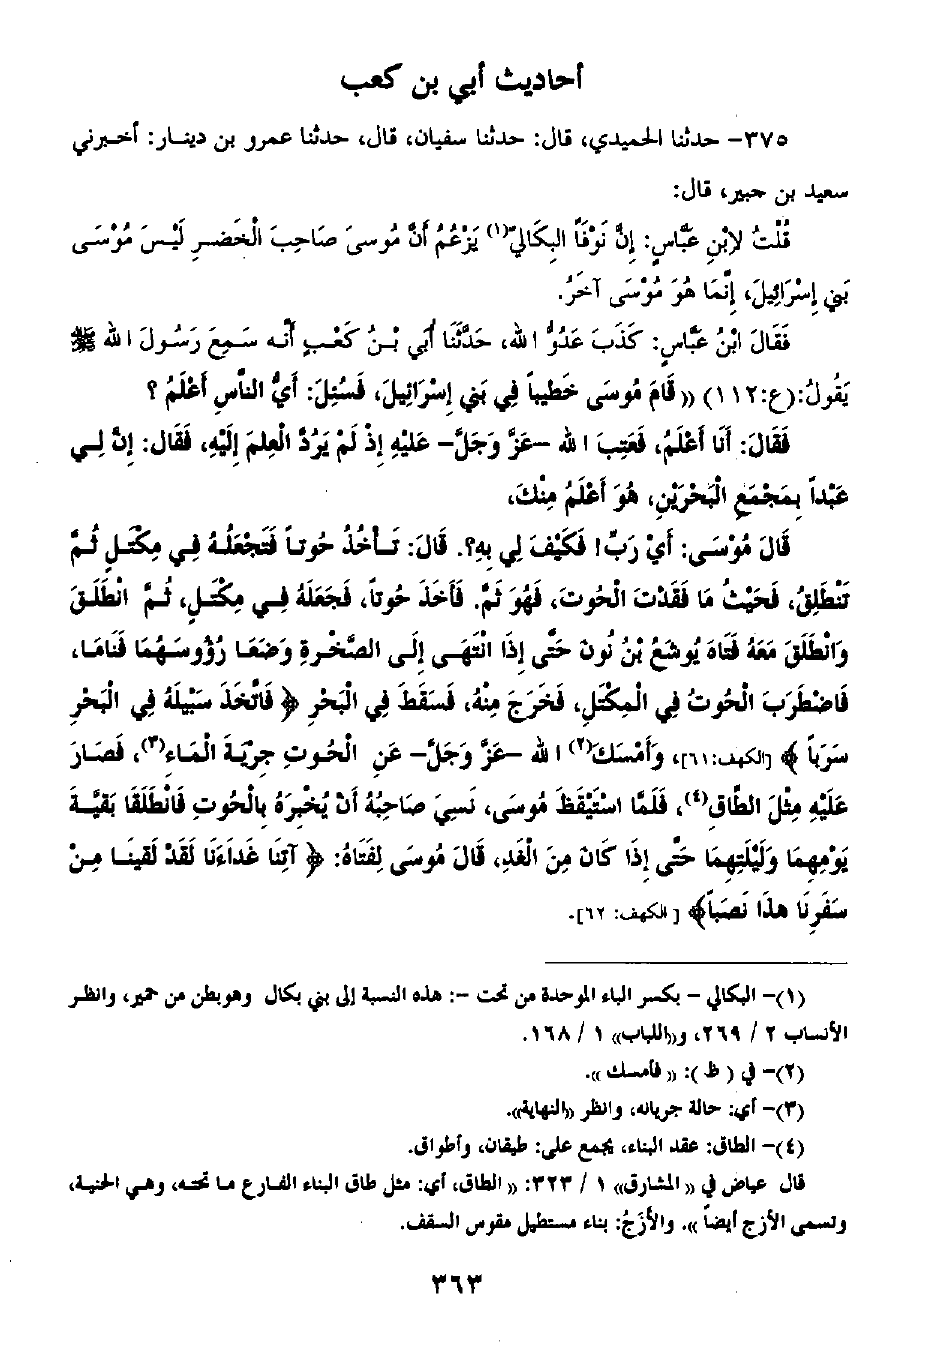 أحاديث أبي بن كعب
٣٧٥- حدثنا الحميدي، قال: حدثنا سفيان، قال، حدثنا عمرو بن دينـار: أخـبرني
سعيد بن جبير، قال:
قُلْتُ لابْنِ عَبَّاسٍ: إِنَّ نَوْفَاً البِكَالِيّ(١) يَزْعُمُ أَنَّ مُوسىَ صَاحِبَ الْخَضـرِ لَيْـسَ مُوْسَـى
بَنِي إِسْرَائِيلَ، إِنَّمَا هُوَ مُوْسَى آخَرُ.
فَقَالَ ابْنُ عَبَّاسٍ: كَذَبَ عَدُوُّ الله، حَدَّثَنَا أُبَي بْـنُ كَعْـبٍ أنَّـه سَـمِعَ رَسُـولَ الله ﷺ
يَقُولُ:(ع:١١٢) (( قَامَ مُوسَى خَطِيباً فِي بَنِي إِسْرَائِيلَ، فَسُئِلَ: أيُّ النَّاسِ أَعْلَمُ ؟
فَقَالَ: أَنَا أَعْلَمُ، فَعَتِبَ الله -عَزَّ وَجَلَّ- عَلَيْهِ إِذْ لَمْ يَرُدَّ الْعِلمَ إِلَيْهِ، فَقَال: إِنَّ لِـي
عَبْداً بِمَجْمَعِ الْبَحْرَيْنِ، هُوَ أَعْلَمُ مِنْكَ،
قَالَ مُوْسَـى: أَيْ رَبِّ! فَكَيْفَ لِي بِهِ؟. قَالَ: تَـأْخُذُ حُوتـاً فَتَجْعَلُـهُ فِـي مِكْتَـلٍ ثُـمَّ
تَنْطَلِقُ، فَحَيْثُ مَا فَقَدْتَ الْحُوتَ، فَهُوَ ثَمَّ. فَأَخَذَ حُوتاً، فَجَعَلَهُ فِـي مِكْتَـلٍ، ثُـمَّ انْطَلَـقَ
وَانْطَلَقَ مَعَهُ فَتَاهُ يُوشَعُ بْنُ نُونَ حَتَّى إِذَا انْتَهَـى إِلَـى الصَّخْـرةِ وَضَعَـا رُؤُوسَـهُمَا فَنَامَـا،
فَاضْطَرَبَ الْحُوتُ فِي الْمِكْتَلِ، فَخَرَجَ مِنْهُ، فَسَقَطَ فِي الْبَحْرِ ﴿ فَاتَّخَذَ سَبِيْلَهُ فِي الْبَحْرِ
سَرَباً ﴾ [الكهف:٦١]، وَأَمْسَكَ(٢) الله -عَزَّ وَجَلَّ- عَنِ الْحُـوتِ جِرْيَـةَ الْمَـاء(٣)، فَصَـارَ
عَلَيْهِ مِثْلَ الطَّاق(٤)، فَلَمَّا اسْتَيْقَظَ مُوسَى، نَسِيَ صَاحِبُهُ أَنْ يُخْبِرَهُ بِالْحُوتِ فَانْطَلَقَا بَقِيَّـةَ
يَوْمِهِمَا وَلَيْلَتِهِمَا حَتَّى إِذَا كَانَ مِنَ الْغَدِ، قَالَ مُوْسَى لِفَتَاهُ: ﴿ آتِنَا غَدَاءَنَا لَقَدْ لَقِينَـا مِـنْ
سَفَرِنَا هذَا نَصَباً﴾ [ الكهف: ٦٢].
(١)- البكالي - بكسر الباء الموحدة من تحت -: هذه النسبة إلى بني بكال وهوبطن من حمير، وانظـر
الأنسـاب ٢ / ٢٦٩، و((اللباب)) ١ / ١٦٨.
(٢)- في ( ظ ): (( فأمسك )).
(٣)- أي: حالة جريانه، وانظر ((النهاية)).
(٤)- الطاق: عقد البناء، يجمع على: طيقان، وأطواق.
قال عياض في (( المشارق)) ١ / ٣٢٣: (( الطاق، أي: مثل طاق البناء الفـارع مـا تحتـه، وهـي الحنيـة،
وتسمى الأزج أيضاً )). والأَزَجُ: بناء مستطيل مقوس السقف.
٣٦٣